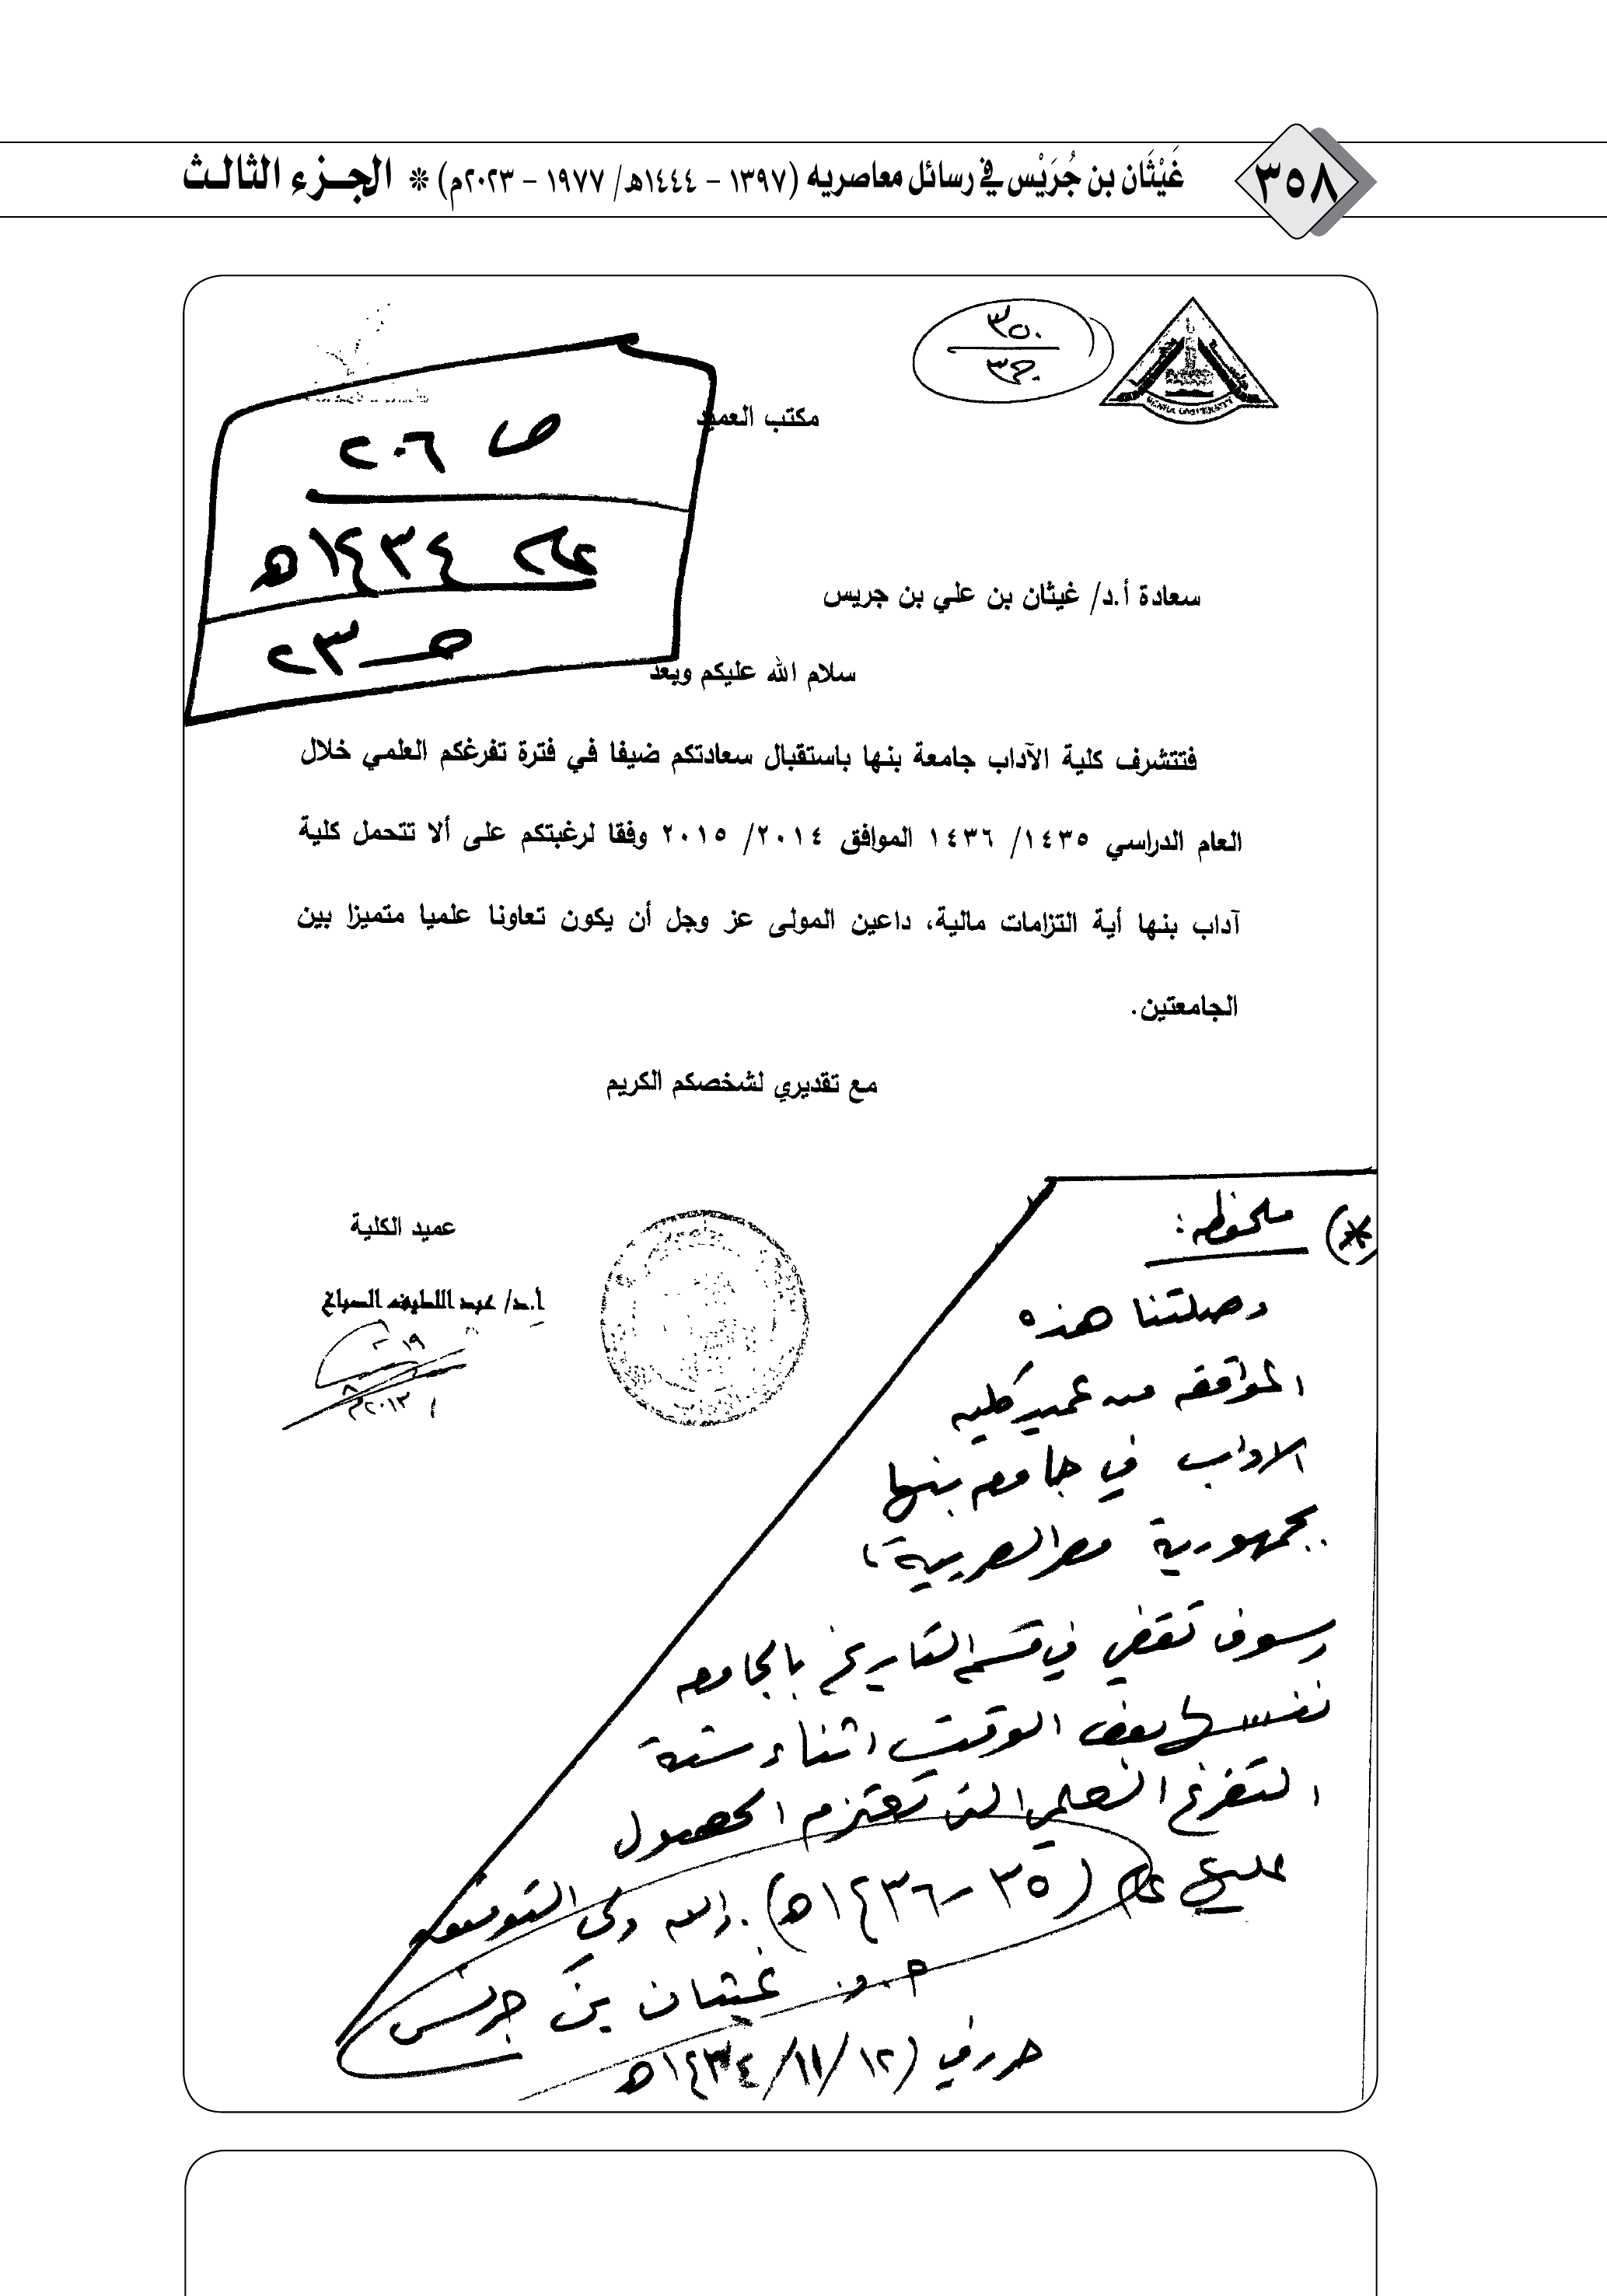 ٣٥٨
غَيْثَان بن جُرَيْس في رسائل معاصريه (١٣٩٧ - ١٤٤٤هـ/ ١٩٧٧ - ٢٠٢٣م) * الجزء الثالث
٣٥٠
ج٣
BENHA UNIVERSITY
مكتب العميد
ص ٢٠٦
عام ١٤٣٤هـ
ج ٢٣
سعادة أ.د/ غيثان بن علي بن جريس
سلام الله عليكم وبعد
فتتشرف كلية الآداب جامعة بنها باستقبال سعادتكم ضيفا في فترة تفرغكم العلمي خلال
العام الدراسي ١٤٣٥/ ١٤٣٦ الموافق ٢٠١٤/ ٢٠١٥ وفقا لرغبتكم على ألا تتحمل كلية
آداب بنها أية التزامات مالية، داعين المولى عز وجل أن يكون تعاونا علميا متميزا بين
الجامعتين.
مع تقديري لشخصكم الكريم
عميد الكلية
أ.د/ عبد اللطيف الصباغ
١٩
٨
٢٠١٣م
(*) ملحوظه :
وصلتنا هذه
الموافقه من عميد كليه
الاداب في جامعه بنها
بجمهورية مصر العربية ،
وسوف نقضي في قسم التاريخ بالجامعه
نفسها بعض الوقت اثناء سنة
التفرغ العلمي التي نعتزم الحصول
عليها عام (٣٥-١٤٣٦هـ). والله ولي التوفيق
غيثان بن جريس
حرر في (١٢/١١/١٤٣٤هـ